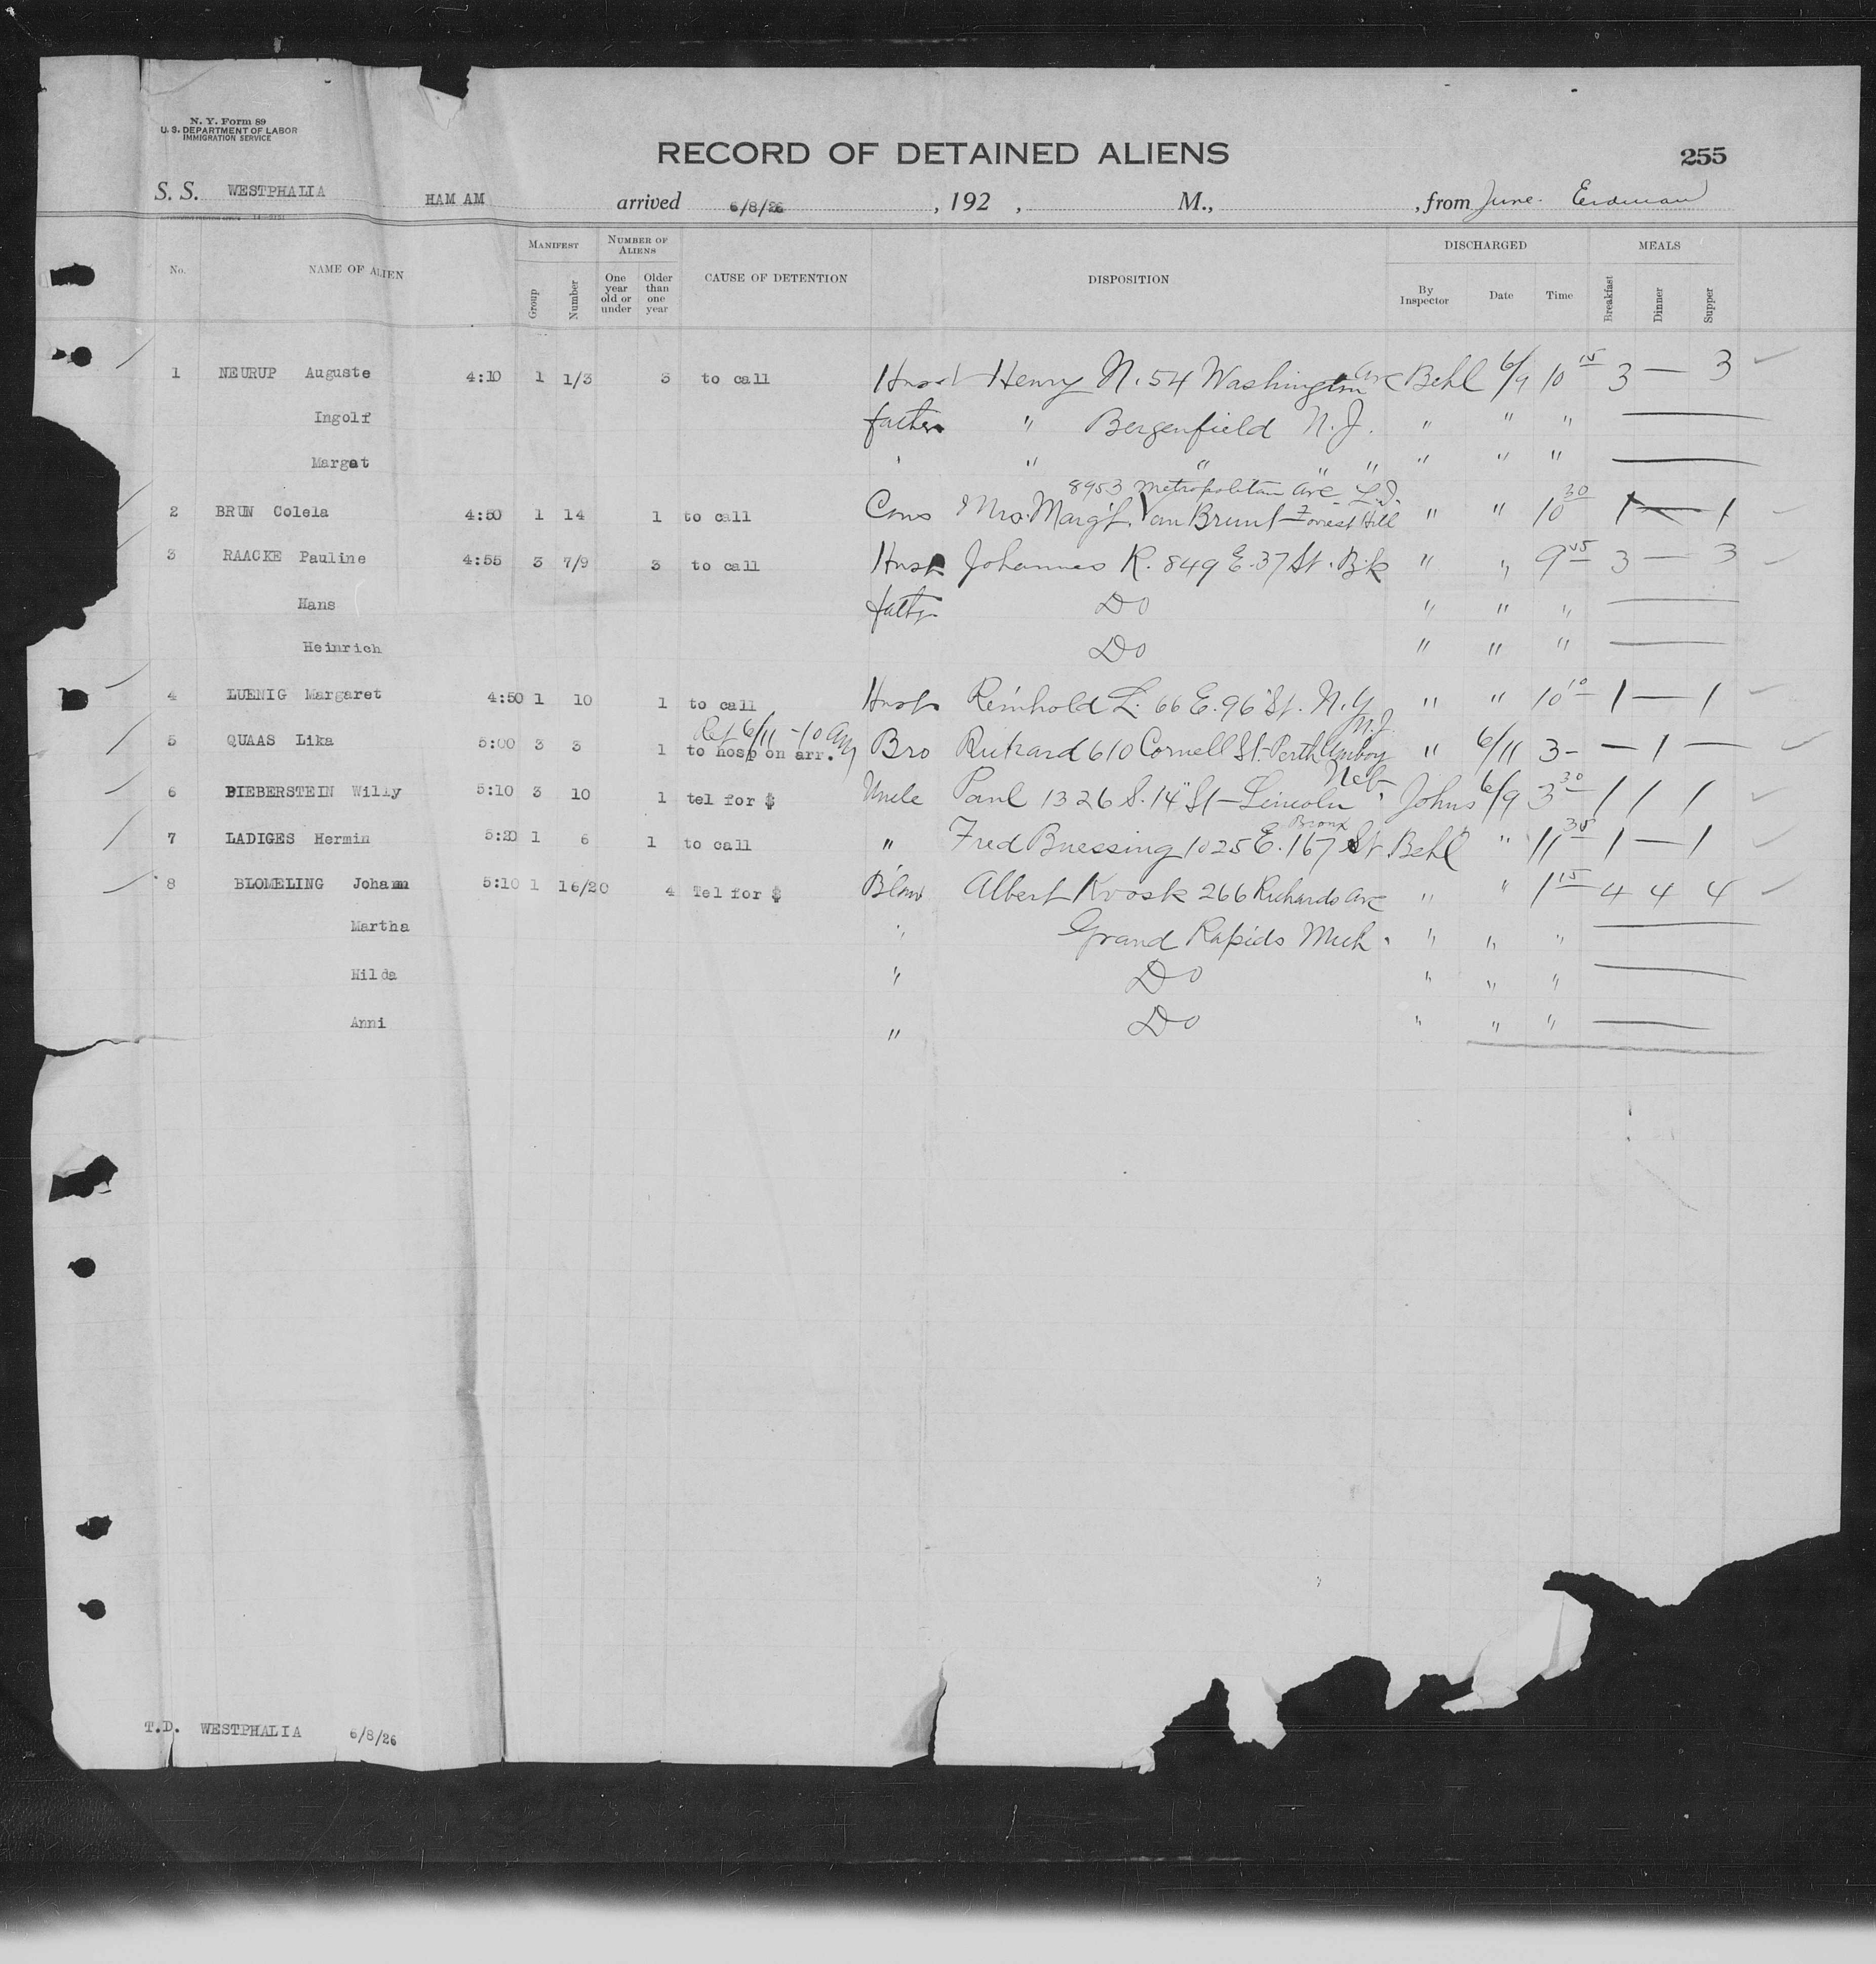 N. Y. Form 89
U. S. DEPARTMENT OF LABOR
IMMIGRATION SERVICE
RECORD OF DETAINED ALIENS 255
S. S. WESTPHALIA HAM AM arrived 6/8/26 , 192 , M., , from June Erdman
No. NAME OF ALIEN MANIFEST Group Number NUMBER OF ALIENS One year old or under Older than one year CAUSE OF DETENTION DISPOSITION DISCHARGED By Inspector Date Time MEALS Breakfast Dinner Supper
1 NEURUP Auguste 4:10 1 1/3 3 to call Husb Henry N. 54 Washington Ave Behl 6/9 10 15 3 — 3
Ingolf father " Bergenfield N.J. " " "
Margat " " " " " " " "
8953 Metropolitan Ave L.I.
2 BRUN Colela 4:50 1 14 1 to call Cous Mrs. Marg't. Van Brunt - Forrest Hill " " 10 30 1 — 1
3 RAACKE Pauline 4:55 3 7/9 3 to call Husb Johannes R. 849 E. 37 St. Bk " " 9 45 3 — 3
Hans father Do " " "
Heinrich Do " " "
4 LUENIG Margaret 4:50 1 10 1 to call Husb Reinhold L. 66 E. 96" St. N.Y. " " 10 10 1 — 1
Ret 6/11 - 10 AM N.J.
5 QUAAS Lika 5:00 3 3 1 to hosp on arr. Bro Rickard 610 Cornell St. Perth Amboy " 6/11 3- — 1 —
6 BIEBERSTEIN Willy 5:10 3 10 1 tel for $ Uncle Paul 1326 S. 14" St - Lincoln Neb. Johns 6/9 3 30 1 1 1
7 LADIGES Hermin 5:20 1 6 1 to call " Fred Buessing 1025 E. 167 St Bronx Behl " 11 35 1 — 1
8 BLOMELING Johann 5:10 1 16/20 4 Tel for $ Blaw Albert Kvosk 266 Richards Ave " " 1 15 4 4 4
Martha " Grand Rapids Mich. " " "
Hilda " Do " " "
Anni " Do " " "
T.D. WESTPHALIA 6/8/26